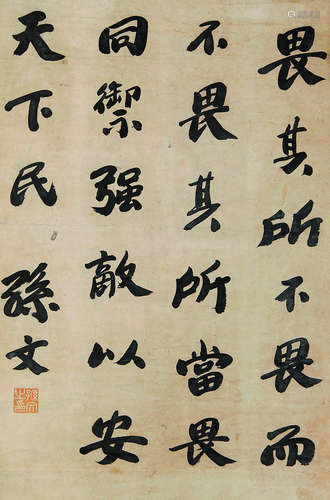 畏其所不畏而
不畏其所當畏
同禦强敵以安
天下民 孫文